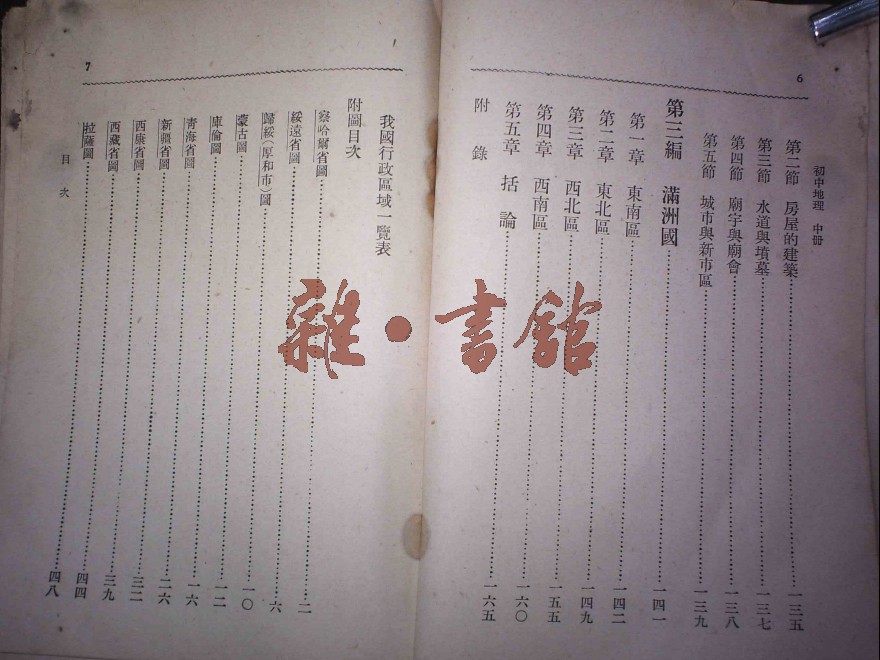 6
初中地理 中冊
第二節 房屋的建築……一三五
第三節 水道與墳墓……一三七
第四節 廟宇與廟會……一三八
第五節 城市與新市區……一三九
第三編 滿洲國……一四一
第一章 東南區……一四二
第二章 東北區……一四九
第三章 西北區……一五五
第四章 西南區……一六〇
第五章 括論……一六五
附錄
7
我國行政區域一覽表
附圖目次
察哈爾省圖……二
綏遠省圖……六
歸綏(厚和市)圖……一〇
蒙古圖……一二
庫倫圖……一六
青海省圖……二六
新疆省圖……三二
西康省圖……三九
西藏省圖……四四
拉薩圖……四八
目次
雜·書館